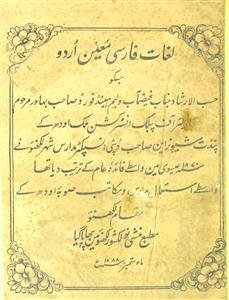 لغات فارسی معین اردو
جسکو
حسب الارشاد جناب فیضمآب ولیم ہینڈ فورڈ صاحب بہادر مرحوم
آف پبلک انسٹرکشن ملک اودھ کے
پنڈت شیو نراین صاحب ڈپٹی انسپکٹر مدارس شہر لکھنؤ نے
عیسوی مین واسطے فائدہ عام کے ترتیب دیا تھا
واسطے استعمال مدارس و مکاتب صوبہ اودھ کے
مقام لکھنؤ
مطبع منشی نولکشور لکھنؤ مین چھاپا گیا
ماہ ستمبر